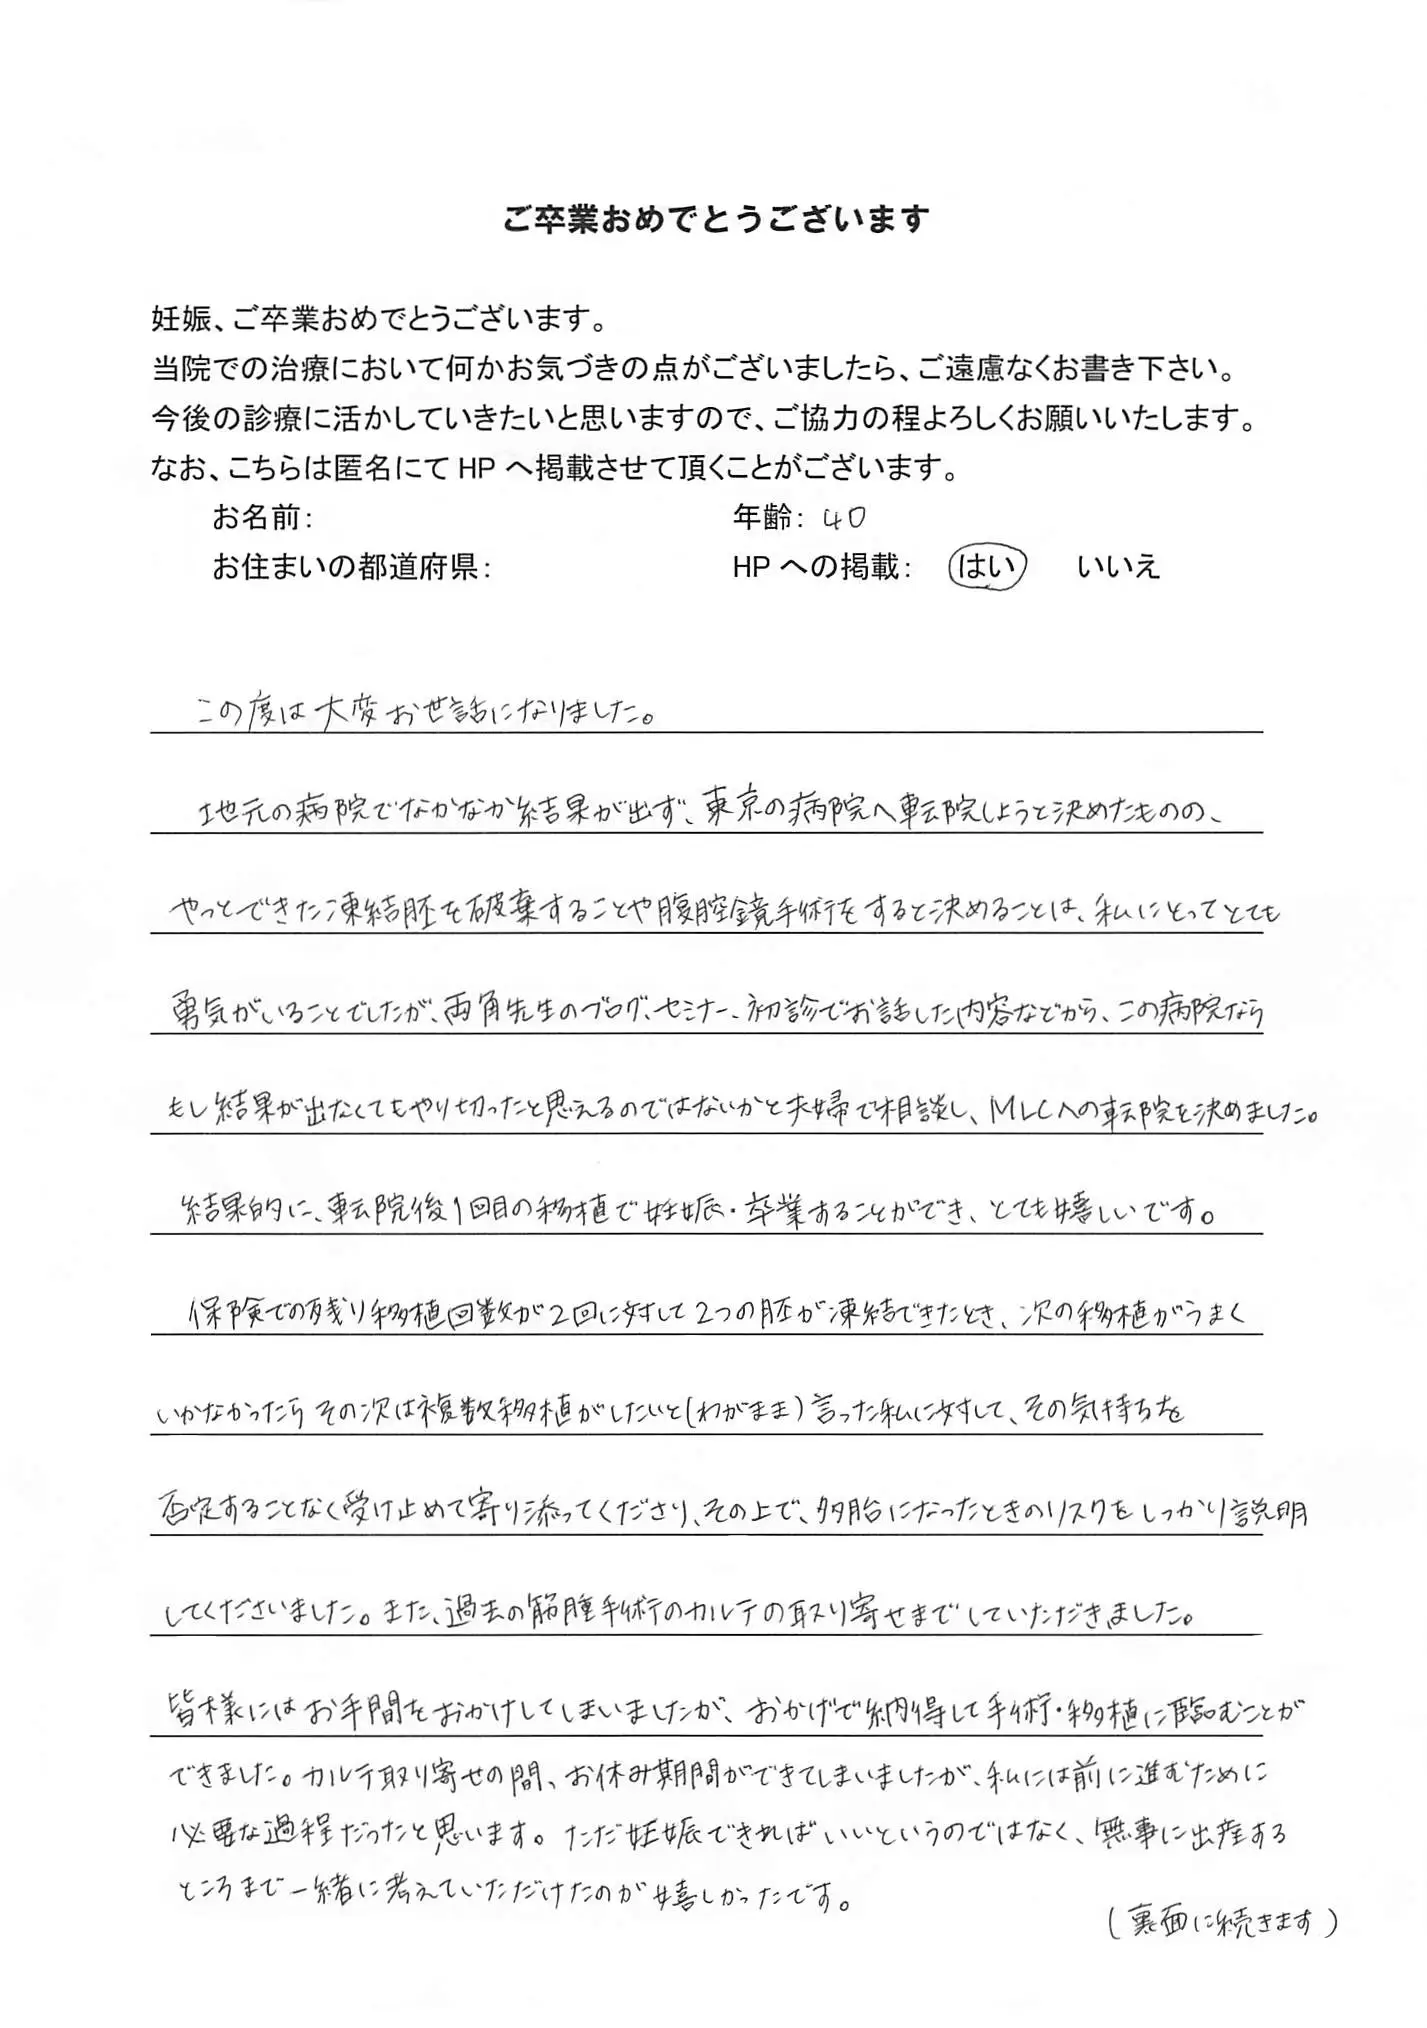 ご卒業おめでとうございます
妊娠、ご卒業おめでとうございます。
当院での治療において何かお気づきの点がございましたら、ご遠慮なくお書き下さい。
今後の診療に活かしていきたいと思いますので、ご協力の程よろしくお願いいたします。
なお、こちらは匿名にて HP へ掲載させて頂くことがございます。
お名前: 年齢: 40
お住まいの都道府県: HP への掲載: はい いいえ
この度は大変お世話になりました。
地元の病院でなかなか結果が出ず、東京の病院へ転院しようと決めたものの、
やっとできた凍結胚を破棄することや腹腔鏡手術をすると決めることは、私にとってとても
勇気がいることでしたが、両角先生のブログ、セミナー、初診でお話した内容などから、この病院なら
もし結果が出なくてもやり切ったと思えるのではないかと夫婦で相談し、MLCへの転院を決めました。
結果的に、転院後1回目の移植で妊娠・卒業することができ、とても嬉しいです。
保険での残り移植回数が2回に対して2つの胚が凍結できたとき、次の移植がうまく
いかなかったらその次は複数移植がしたいと(わがまま)言った私に対して、その気持ちを
否定することなく受け止めて寄り添ってくださり、その上で、多胎になったときのリスクをしっかり説明
してくださいました。また、過去の筋腫手術のカルテの取り寄せまでしていただきました。
皆様にはお手間をおかけしてしまいましたが、おかげで納得して手術・移植に臨むことが
できました。カルテ取り寄せの間、お休み期間ができてしまいましたが、私には前に進むために
必要な過程だったと思います。ただ妊娠できればいいというのではなく、無事に出産する
ところまで一緒に考えていただけたのが嬉しかったです。
(裏面に続きます)